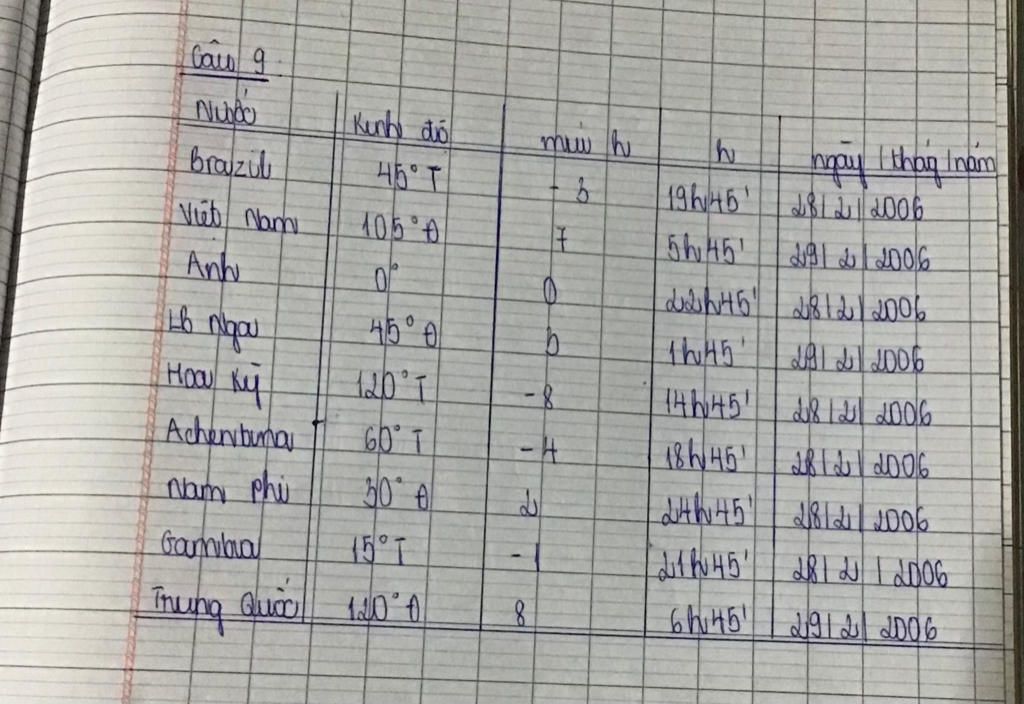 Câu 9
Nước Kinh độ múi h h ngày / tháng / năm
Brazil 45° T - 3 19h45' 28/2/2006
Việt Nam 105° Đ 7 5h45' 29/2/2006
Anh 0° 0 22h45' 28/2/2006
LB Nga 45° Đ 3 1h45' 29/2/2006
Hoa Kỳ 120° T - 8 14h45' 28/2/2006
Achentina 60° T - 4 18h45' 28/2/2006
Nam phi 30° Đ 2 24h45' 28/2/2006
Gambia 15° T - 1 21h45' 28/2/2006
Trung Quốc 120° Đ 8 6h45' 29/2/2006